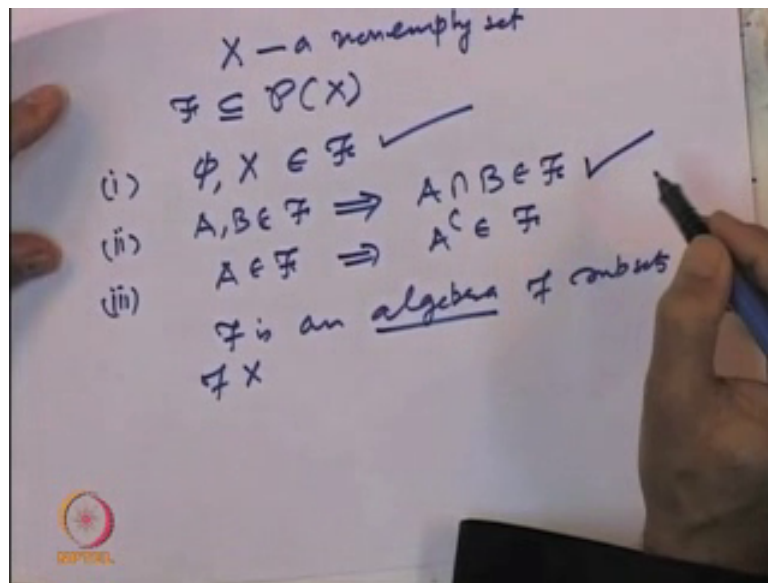 X — a nonempty set
ℱ ⊆ 𝒫(X)
(i) φ, X ∈ ℱ ✓
(ii) A, B ∈ ℱ ⟹ A ∩ B ∈ ℱ ✓
(iii) A ∈ ℱ ⟹ Aᶜ ∈ ℱ
ℱ is an algebra of subsets
of X
NPTEL